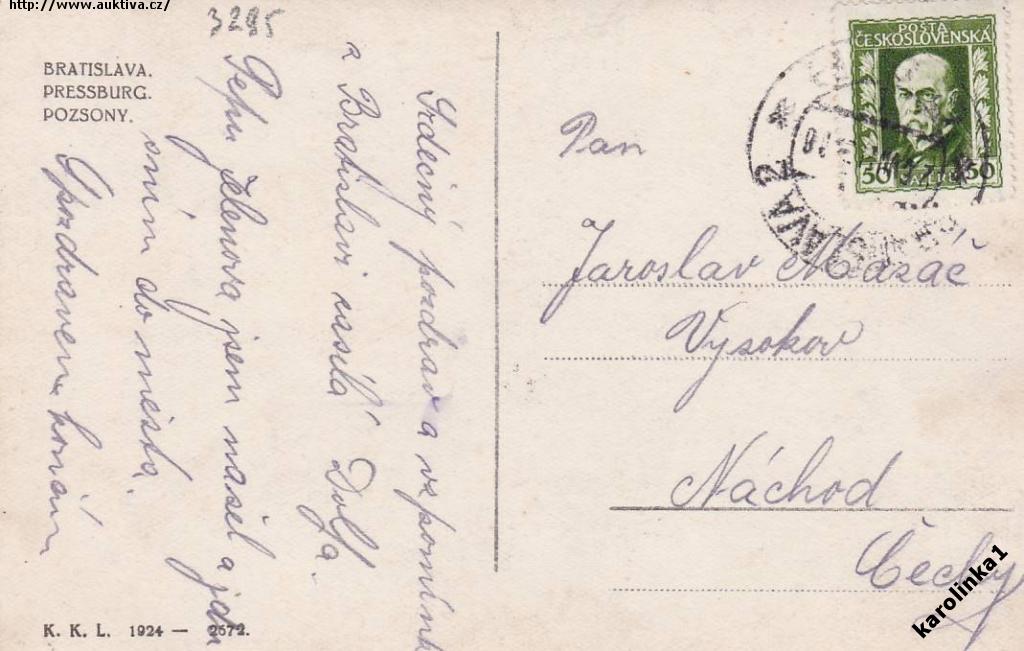 http://www.auktiva.cz/
3285
BRATISLAVA.
PRESSBURG.
POZSONY.
Srdečný pozdrav a vzpomínku
z Bratislavi zasílá Dolfa.
Pepu jsem našel a jdu
s ním do města.
S pozdravem
K. K. L. 1924 — 2672.
POŠTA
ČESKOSLOVENSKÁ
50 50
Pan
Jaroslav Mazáč
Vysokov
Náchod
Čechy
karolinka1